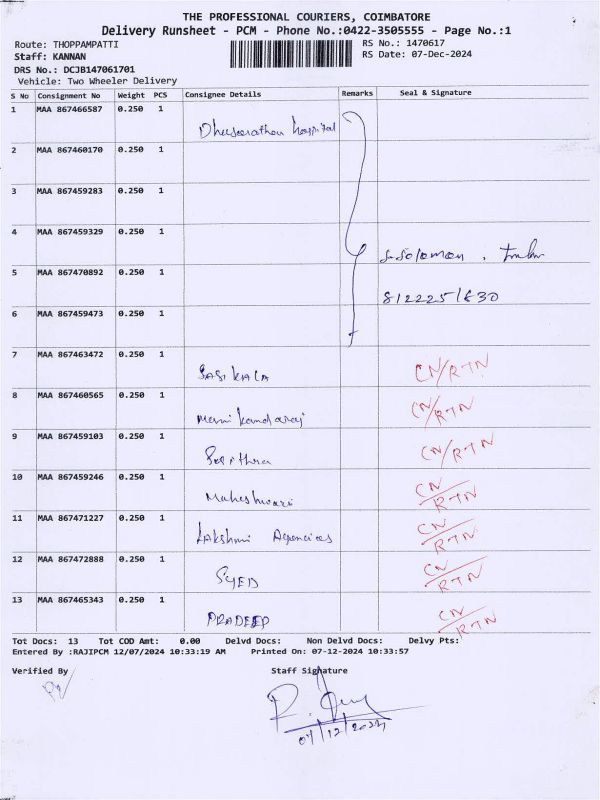 THE PROFESSIONAL COURIERS, COIMBATORE
Delivery Runsheet - PCM - Phone No.:0422-3505555 - Page No.:1
Route: THOPPAMPATTI
RS No.: 1470617
Staff: KANNAN
RS Date: 07-Dec-2024
DRS No.: DCJB147061701
Vehicle: Two Wheeler Delivery
S No Consignment No Weight PCS Consignee Details Remarks Seal & Signature
1 MAA 867466587 0.250 1 hospital
2 MAA 867460170 0.250 1
3 MAA 867459283 0.250 1
4 MAA 867459329 0.250 1 S. Solomon
5 MAA 867470892 0.250 1
6 MAA 867459473 0.250 1
7 MAA 867463472 0.250 1 SASIKALA CN/RTN
8 MAA 867460565 0.250 1 CN/RTN
9 MAA 867459103 0.250 1 CN/RTN
10 MAA 867459246 0.250 1 Maheshwari CN/RTN
11 MAA 867471227 0.250 1 Lakshmi Agencies CN/RTN
12 MAA 867472888 0.250 1 SYED CN/RTN
13 MAA 867465343 0.250 1 PRADEEP CN/RTN
Tot Docs: 13 Tot COD Amt: 0.00 Delvd Docs: Non Delvd Docs: Delvy Pts:
Entered By :RAJIPCM 12/07/2024 10:33:19 AM Printed On: 07-12-2024 10:33:57
Verified By Staff Signature
07/12/2024